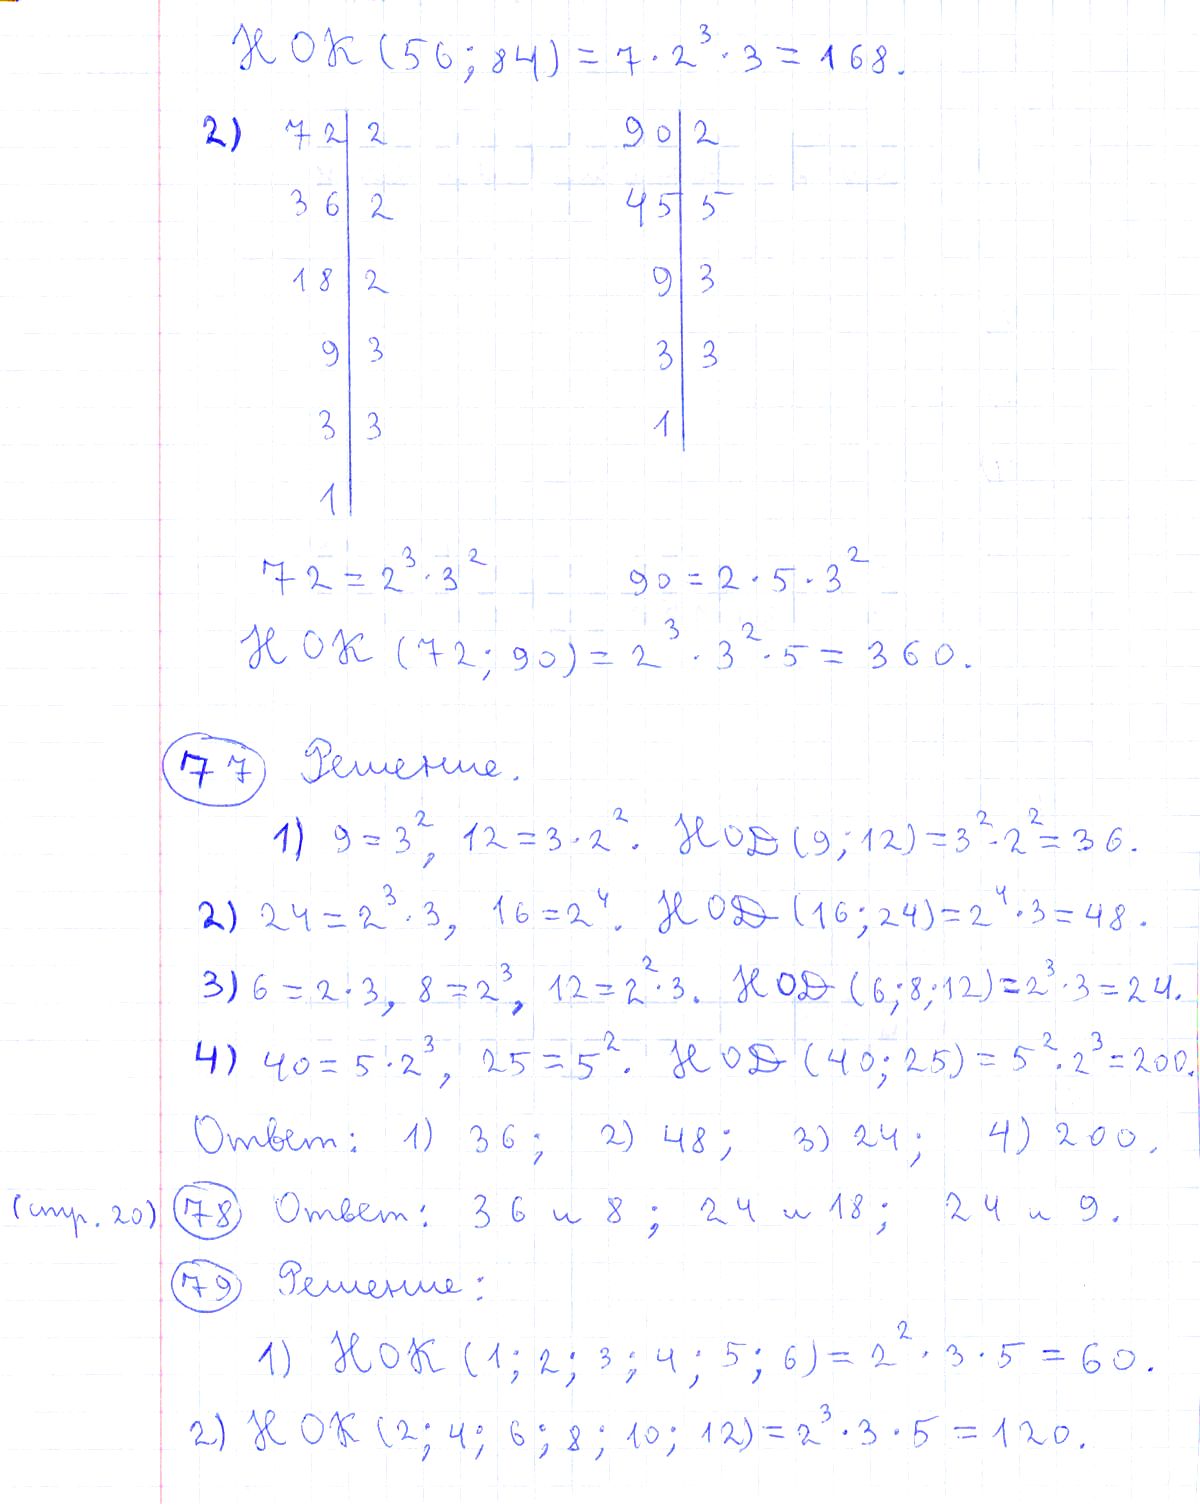 НОК (56; 84) = 7 · 2³ · 3 = 168.
2) 72 | 2 90 | 2
36 | 2 45 | 5
18 | 2 9 | 3
9 | 3 3 | 3
3 | 3 1 |
1 |
72 = 2³ · 3² 90 = 2 · 5 · 3²
НОК (72; 90) = 2³ · 3² · 5 = 360.
77 Решение.
1) 9 = 3², 12 = 3 · 2². НОД (9; 12) = 3² · 2² = 36.
2) 24 = 2³ · 3, 16 = 2⁴. НОД (16; 24) = 2⁴ · 3 = 48.
3) 6 = 2 · 3, 8 = 2³, 12 = 2² · 3. НОД (6; 8; 12) = 2³ · 3 = 24.
4) 40 = 5 · 2³, 25 = 5². НОД (40; 25) = 5² · 2³ = 200.
Ответ: 1) 36; 2) 48; 3) 24; 4) 200.
(стр. 20) 78 Ответ: 36 и 8; 24 и 18; 24 и 9.
79 Решение:
1) НОК (1; 2; 3; 4; 5; 6) = 2² · 3 · 5 = 60.
2) НОК (2; 4; 6; 8; 10; 12) = 2³ · 3 · 5 = 120.